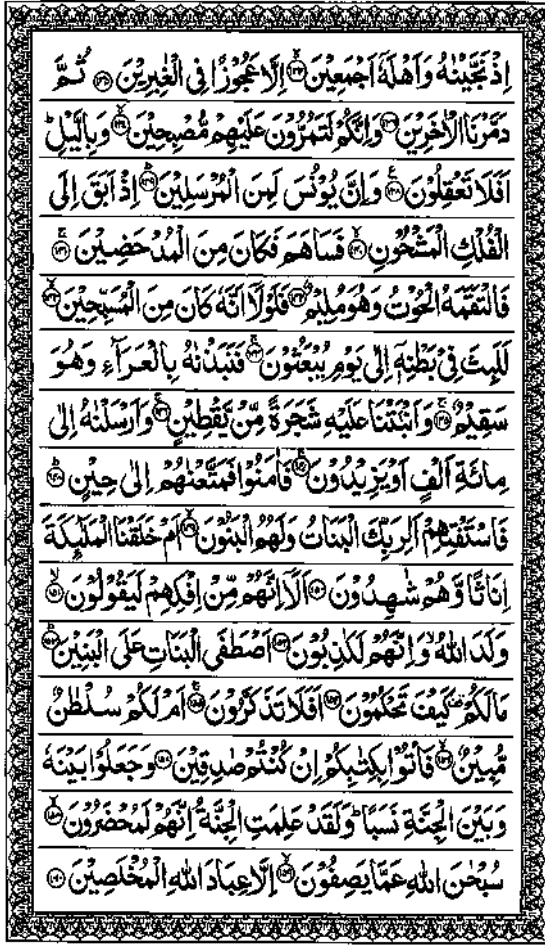 اِذْ نَجَّیْنٰهُ وَاَهْلَهٗۤ اَجْمَعِیْنَ ﴿۱۳۴﴾ اِلَّا عَجُوْزًا فِی الْغٰبِرِیْنَ ﴿۱۳۵﴾ ثُمَّ
دَمَّرْنَا الْاٰخَرِیْنَ ﴿۱۳۶﴾ وَاِنَّكُمْ لَتَمُرُّوْنَ عَلَیْهِمْ مُّصْبِحِیْنَ ﴿۱۳۷﴾ وَبِالَّیْلِ ؕ
اَفَلَا تَعْقِلُوْنَ ﴿۱۳۸﴾ وَاِنَّ یُوْنُسَ لَمِنَ الْمُرْسَلِیْنَ ﴿۱۳۹﴾ اِذْ اَبَقَ اِلَی
الْفُلْكِ الْمَشْحُوْنِ ﴿۱۴۰﴾ فَسَاهَمَ فَكَانَ مِنَ الْمُدْحَضِیْنَ ﴿۱۴۱﴾
فَالْتَقَمَهُ الْحُوْتُ وَهُوَ مُلِیْمٌ ﴿۱۴۲﴾ فَلَوْلَاۤ اَنَّهٗ كَانَ مِنَ الْمُسَبِّحِیْنَ ﴿۱۴۳﴾
لَلَبِثَ فِیْ بَطْنِهٖۤ اِلٰی یَوْمِ یُبْعَثُوْنَ ﴿۱۴۴﴾ فَنَبَذْنٰهُ بِالْعَرَآءِ وَهُوَ
سَقِیْمٌ ﴿۱۴۵﴾ وَاَنْۢبَتْنَا عَلَیْهِ شَجَرَةً مِّنْ یَّقْطِیْنٍ ﴿۱۴۶﴾ وَاَرْسَلْنٰهُ اِلٰی
مِائَةِ اَلْفٍ اَوْ یَزِیْدُوْنَ ﴿۱۴۷﴾ فَاٰمَنُوْا فَمَتَّعْنٰهُمْ اِلٰی حِیْنٍ ﴿۱۴۸﴾
فَاسْتَفْتِهِمْ اَلِرَبِّكَ الْبَنَاتُ وَلَهُمُ الْبَنُوْنَ ﴿۱۴۹﴾ اَمْ خَلَقْنَا الْمَلٰٓىِٕكَةَ
اِنَاثًا وَّهُمْ شٰهِدُوْنَ ﴿۱۵۰﴾ اَلَاۤ اِنَّهُمْ مِّنْ اِفْكِهِمْ لَیَقُوْلُوْنَ ﴿۱۵۱﴾
وَلَدَ اللّٰهُ ۙ وَاِنَّهُمْ لَكٰذِبُوْنَ ﴿۱۵۲﴾ اَصْطَفَی الْبَنَاتِ عَلَی الْبَنِیْنَ ﴿۱۵۳﴾
مَا لَكُمْ كَیْفَ تَحْكُمُوْنَ ﴿۱۵۴﴾ اَفَلَا تَذَكَّرُوْنَ ﴿۱۵۵﴾ اَمْ لَكُمْ سُلْطٰنٌ
مُّبِیْنٌ ﴿۱۵۶﴾ فَاْتُوْا بِكِتٰبِكُمْ اِنْ كُنْتُمْ صٰدِقِیْنَ ﴿۱۵۷﴾ وَجَعَلُوْا بَیْنَهٗ
وَبَیْنَ الْجِنَّةِ نَسَبًا ؕ وَلَقَدْ عَلِمَتِ الْجِنَّةُ اِنَّهُمْ لَمُحْضَرُوْنَ ﴿۱۵۸﴾
سُبْحٰنَ اللّٰهِ عَمَّا یَصِفُوْنَ ﴿۱۵۹﴾ اِلَّا عِبَادَ اللّٰهِ الْمُخْلَصِیْنَ ﴿۱۶۰﴾